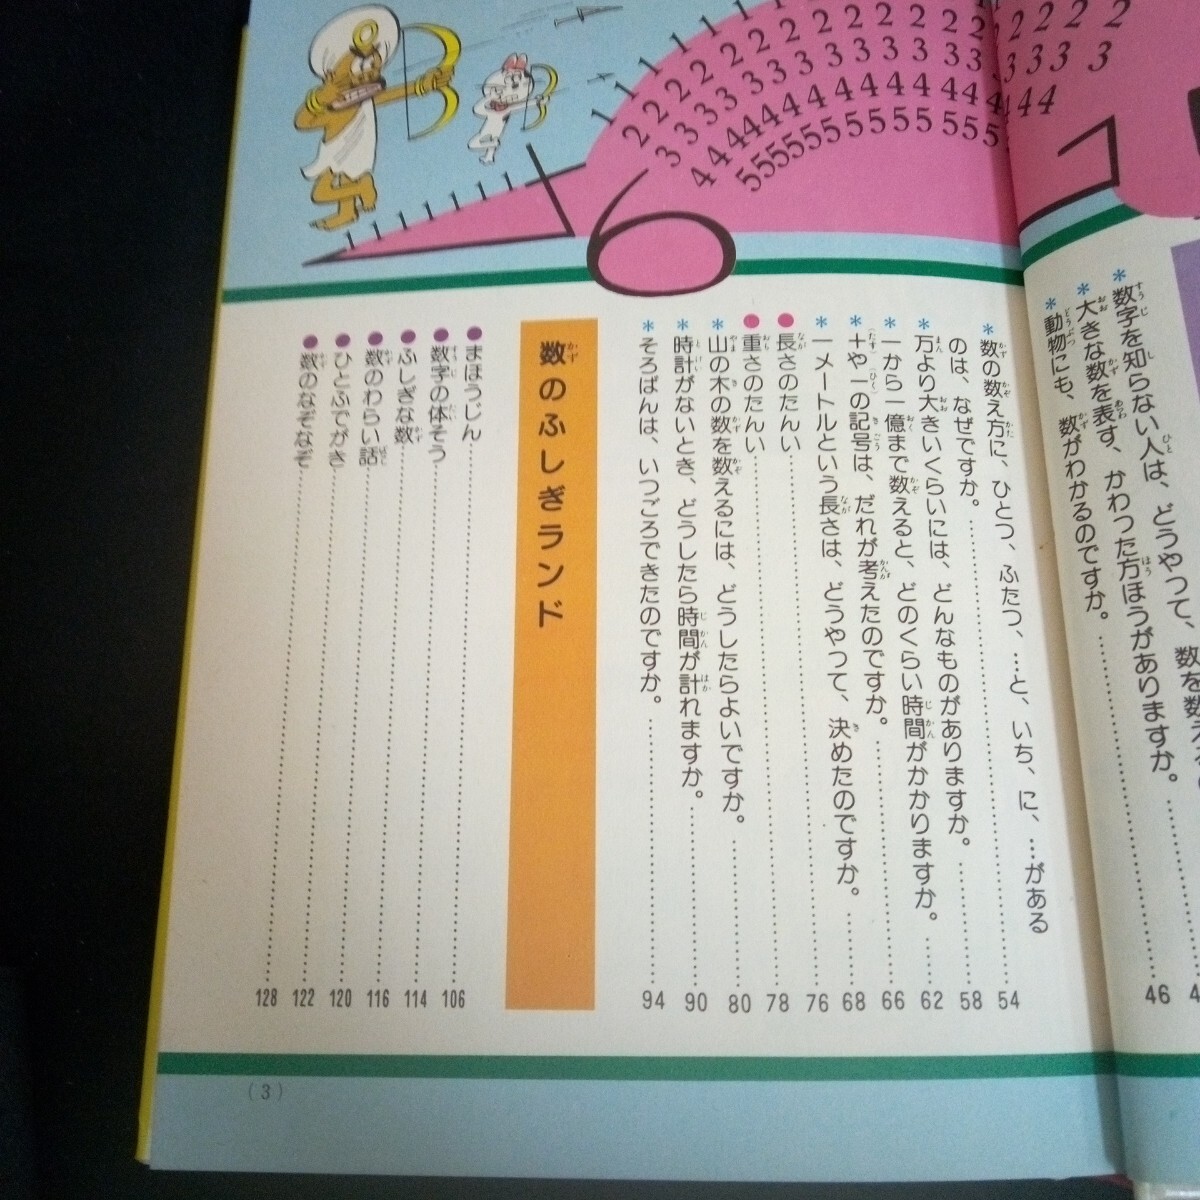 6
7
*数字を知らない人は、どうやって、数を数え
*大きな数を表す、かわった方ほうがありますか。
*動物にも、数がわかるのですか。……46
*数の数え方に、ひとつ、ふたつ、…と、いち、に、…がある
のは、なぜですか。……54
*万より大きいくらいには、どんなものがありますか。……58
*一から一億まで数えると、どのくらい時間がかかりますか。……62
*+や−の記号は、だれが考えたのですか。……66
*一メートルという長さは、どうやって、決めたのですか。……68
●長さのたんい……76
●重さのたんい……78
*山の木の数を数えるには、どうしたらよいですか。……80
*時計がないとき、どうしたら時間が計れますか。……90
*そろばんは、いつごろできたのですか。……94
数のふしぎランド
●まほうじん……106
●数字の体そう……114
●ふしぎな数……116
●数のわらい話……120
●ひとふでがき……122
●数のなぞなぞ……128
(3)